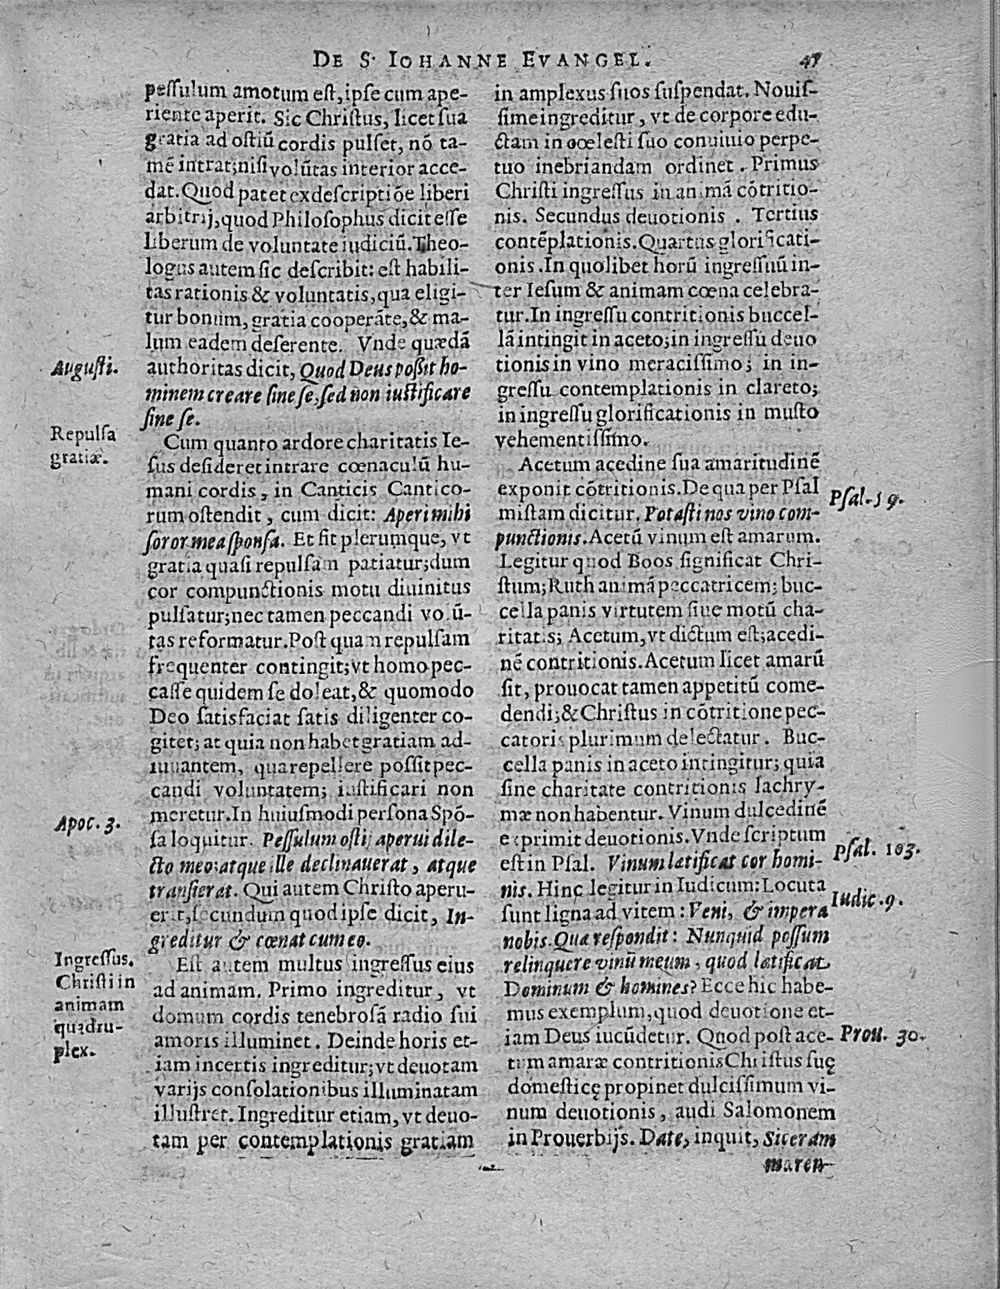 DE S. IOHANNE EVANGEL. 47
peſſulum amotum eſt, ipſe cum ape-
riente aperit. Sic Chriſtus, licet ſua
gratia ad oſtiū cordis pulſet, nō ta-
mē intrat; niſi volūtas interior acce-
dat. Quod patet ex deſcriptiōe liberi
arbitrij, quod Philoſophus dicit eſſe
liberum de voluntate iudiciū. Theo-
logus autem ſic deſcribit: eſt habili-
tas rationis & voluntatis, qua eligi-
tur bonum, gratia cooperāte, & ma-
lum eadem deſerente. Vnde quædā
Auguſti.
authoritas dicit, Quod Deus poßit ho-
minem creare ſine ſe, ſed non iuſtificare
ſine ſe.
Repulſa
gratiæ.
Cum quanto ardore charitatis Ie-
ſus deſideret intrare cœnaculū hu-
mani cordis, in Canticis Cantico-
rum oſtendit, cum dicit: Aperi mihi
ſoror mea ſponſa. Et ſit plerumque, vt
gratia quaſi repulſam patiatur; dum
cor compunctionis motu diuinitus
pulſatur; nec tamen peccandi volū-
tas reformatur. Poſt quam repulſam
frequenter contingit; vt homo pec-
caſſe quidem ſe doleat, & quomodo
Deo ſatisfaciat ſatis diligenter co-
gitet; at quia non habet gratiam ad-
iuuantem, qua repellere poſſit pec-
candi voluntatem; iuſtificari non
Apoc. 3.
meretur. In huiuſmodi perſona Spō-
ſa loquitur. Peſſulum oſtij aperui dile-
cto meo: atque ille declinauerat, atque
tranſierat. Qui autem Chriſto aperu-
erit, ſecundum quod ipſe dicit, In-
greditur & cœnat cum eo.
Ingreſſus.
Chriſti in
animam
quadru-
plex.
Eſt autem multus ingreſſus eius
ad animam. Primo ingreditur, vt
domum cordis tenebroſā radio ſui
amoris illuminet. Deinde horis et-
iam incertis ingreditur; vt deuotam
varijs conſolationibus illuminatam
illuſtret. Ingreditur etiam, vt deuo-
tam per contemplationis gratiam
in amplexus ſuos ſuſpendat. Nouiſ-
ſime ingreditur, vt de corpore edu-
ctam in cœleſti ſuo conuiuio perpe-
tuo inebriandam ordinet. Primus
Chriſti ingreſſus in animā cōtritio-
nis. Secundus deuotionis. Tertius
contēplationis. Quartus glorificati-
onis. In quolibet horū ingreſſuū in-
ter Ieſum & animam cœna celebra-
tur. In ingreſſu contritionis buccel-
lā intingit in aceto; in ingreſſu deuo
tionis in vino meraciſſimo; in in-
greſſu contemplationis in clareto;
in ingreſſu glorificationis in muſto
vehementiſſimo.
Acetum acedine ſua amaritudinē
exponit cōtritionis. De qua per Pſal
Pſal. 59.
miſtam dicitur. Potaſti nos vino com-
punctionis. Acetū vinum eſt amarum.
Legitur quod Boos ſignificat Chri-
ſtum; Ruth animā peccatricem; buc-
cella panis virtutem ſiue motū cha-
ritatis; Acetum, vt dictum eſt; acedi-
nē contritionis. Acetum licet amarū
ſit, prouocat tamen appetitū come-
dendi; & Chriſtus in cōtritione pec-
catoris plurimum delectatur. Buc-
cella panis in aceto intingitur; quia
ſine charitate contritionis lachry-
mæ non habentur. Vinum dulcedinē
exprimit deuotionis. Vnde ſcriptum
Pſal. 103.
eſt in Pſal. Vinum lætificat cor homi-
nis. Hinc legitur in Iudicum: Locuta
Iudic. 9.
ſunt ligna ad vitem: Veni, & impera
nobis. Quæ reſpondit: Nunquid poſſum
relinquere vinū meum, quod lætificat
Dominum & homines? Ecce hic habe-
mus exemplum, quod deuotione et-
Prou. 30.
iam Deus iucūdetur. Quod poſt ace-
tum amaræ contritionis Chriſtus ſuę
domeſticę propinet dulciſſimum vi-
num deuotionis, audi Salomonem
in Prouerbijs. Date, inquit, Siceram
mæren-